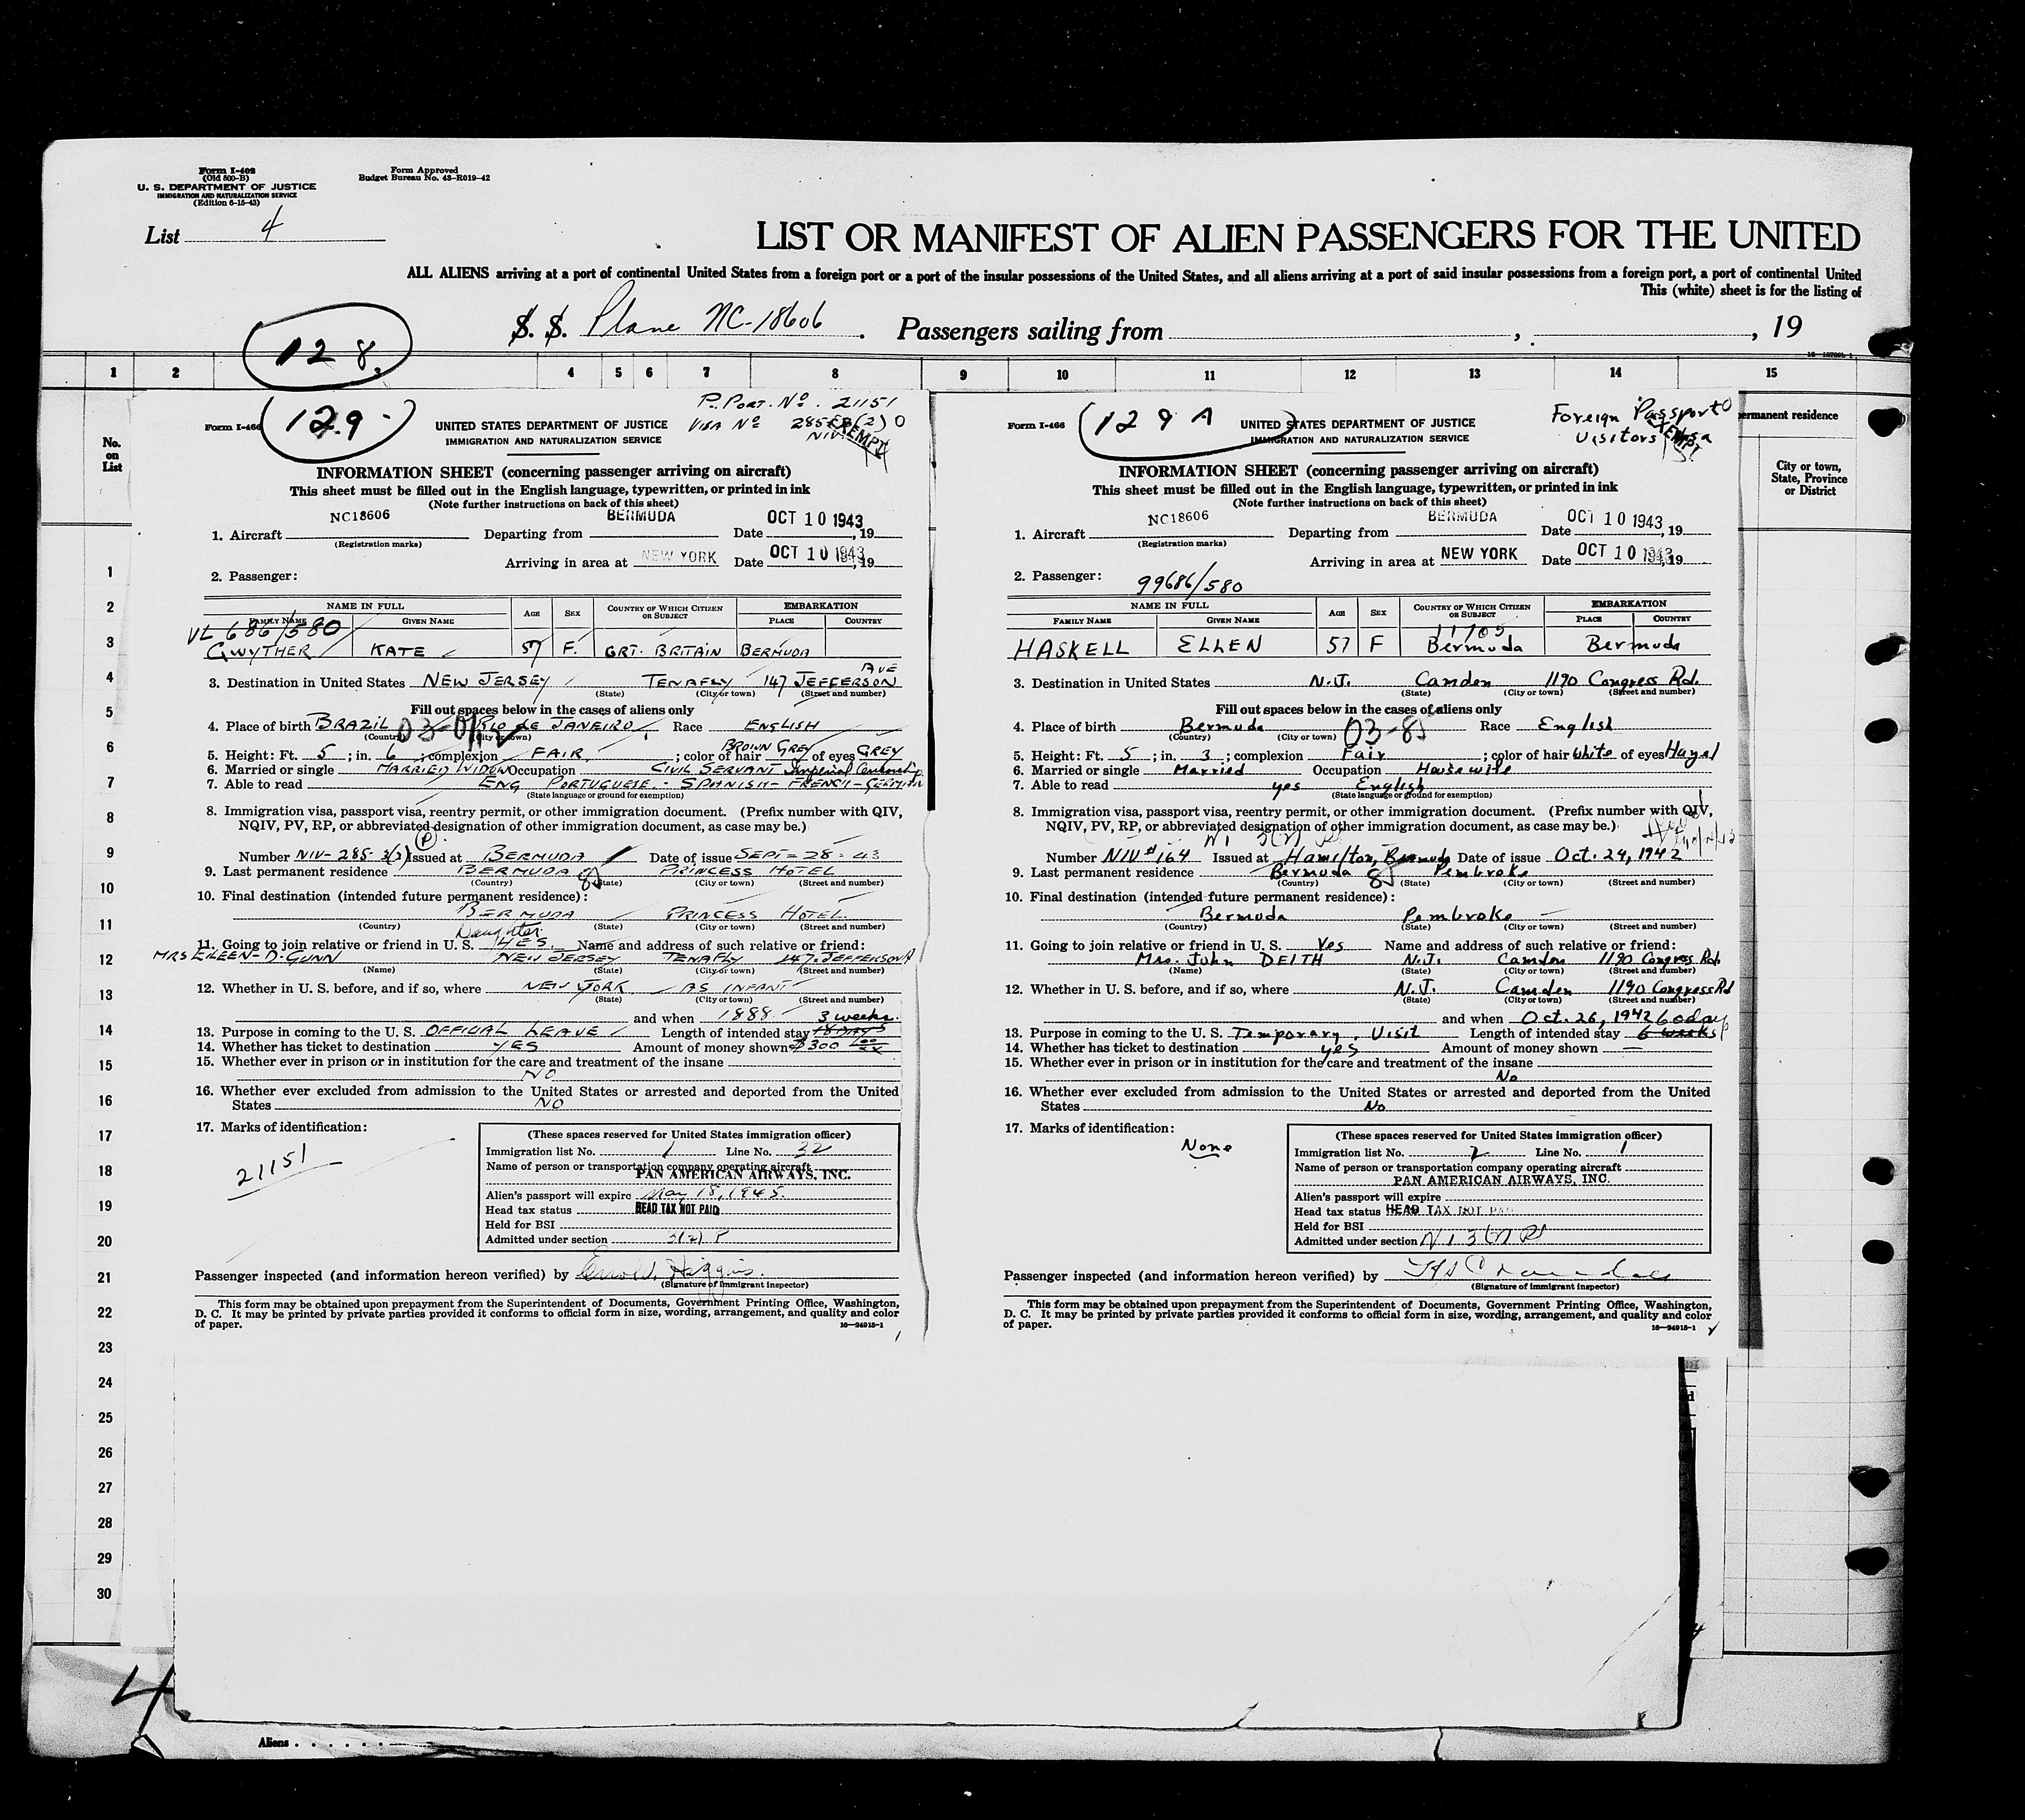 Form I-402
(Old 500-B)
U. S. DEPARTMENT OF JUSTICE
IMMIGRATION AND NATURALIZATION SERVICE
(Edition 6-15-43)
Form Approved
Budget Bureau No. 43-R019-42
List 4
LIST OR MANIFEST OF ALIEN PASSENGERS FOR THE UNITED
ALL ALIENS arriving at a port of continental United States from a foreign port or a port of the insular possessions of the United States, and all aliens arriving at a port of said insular possessions from a foreign port, a port of continental United
This (white) sheet is for the listing of
S. S. Plane NC-18606. Passengers sailing from , , 19
128
1 2 3 4 5 6 7 8 9 10 11 12 13 14 15
No. on List
ermanent residence
City or town, State, Province or District
1
2
3
4
5
6
7
8
9
10
11
12
13
14
15
16
17
18
19
20
21
22
23
24
25
26
27
28
29
30
Form I-466
129
P. PORT. No. 21151
VISA No 285 (2) 0
NIV
EXEMPT
UNITED STATES DEPARTMENT OF JUSTICE
IMMIGRATION AND NATURALIZATION SERVICE
INFORMATION SHEET (concerning passenger arriving on aircraft)
This sheet must be filled out in the English language, typewritten, or printed in ink
(Note further instructions on back of this sheet)
1. Aircraft NC18606 Departing from BERMUDA Date OCT 10 1943, 19
(Registration marks)
Arriving in area at NEW YORK Date OCT 10 1943, 19
2. Passenger:
NAME IN FULL AGE SEX COUNTRY OF WHICH CITIZEN OR SUBJECT EMBARKATION
FAMILY NAME GIVEN NAME PLACE COUNTRY
VL 686/580
GWYTHER KATE 57 F. GRT. BRITAIN BERMUDA
3. Destination in United States NEW JERSEY TENAFLY 147 JEFFERSON AVE
(State) (City or town) (Street and number)
Fill out spaces below in the cases of aliens only
4. Place of birth BRAZIL RIO de JANEIRO Race ENGLISH
(Country) (City or town)
5. Height: Ft. 5; in. 6; complexion FAIR; color of hair BROWN GREY of eyes GREY
6. Married or single MARRIED WIDOW Occupation CIVIL SERVANT Imperial Censorship
7. Able to read ENG PORTUGUESE - SPANISH - FRENCH - GERMAN
(State language or ground for exemption)
8. Immigration visa, passport visa, reentry permit, or other immigration document. (Prefix number with QIV,
NQIV, PV, RP, or abbreviated designation of other immigration document, as case may be.)
(P)
Number NIV-285-3(2) Issued at BERMUDA Date of issue SEPT = 28 = 43
9. Last permanent residence BERMUDA 85 PRINCESS HOTEL
(Country) (State) (City or town) (Street and number)
10. Final destination (intended future permanent residence):
BERMUDA PRINCESS HOTEL.
(Country) (State) (City or town) (Street and number)
Daughter
11. Going to join relative or friend in U. S. YES. Name and address of such relative or friend:
MRS EILEEN-D. GUNN NEW JERSEY TENAFLY 147. JEFFERSON A
(Name) (State) (City or town) (Street and number)
12. Whether in U. S. before, and if so, where NEW YORK AS INFANT
(State) (City or town) (Street and number)
and when 1888 3 weeks.
13. Purpose in coming to the U. S. OFFICIAL LEAVE Length of intended stay 18 DAYS
14. Whether has ticket to destination YES Amount of money shown $300 00/xx
15. Whether ever in prison or in institution for the care and treatment of the insane
NO
16. Whether ever excluded from admission to the United States or arrested and deported from the United
States NO
17. Marks of identification:
21151
(These spaces reserved for United States immigration officer)
Immigration list No. 1 Line No. 32
Name of person or transportation company operating aircraft
PAN AMERICAN AIRWAYS, INC.
Alien's passport will expire May 18, 1945.
Head tax status HEAD TAX NOT PAID
Held for BSI
Admitted under section 3(2) P
Passenger inspected (and information hereon verified) by Higgins.
(Signature of immigrant inspector)
This form may be obtained upon prepayment from the Superintendent of Documents, Government Printing Office, Washington,
D. C. It may be printed by private parties provided it conforms to official form in size, wording, arrangement, and quality and color
of paper.
16—24915-1
Form I-466
129 A
Foreign Passport
Visitors Visa
EXEMPT
UNITED STATES DEPARTMENT OF JUSTICE
IMMIGRATION AND NATURALIZATION SERVICE
INFORMATION SHEET (concerning passenger arriving on aircraft)
This sheet must be filled out in the English language, typewritten, or printed in ink
(Note further instructions on back of this sheet)
1. Aircraft NC18606 Departing from BERMUDA Date OCT 10 1943, 19
(Registration marks)
Arriving in area at NEW YORK Date OCT 10 1943, 19
2. Passenger: 99686/580
NAME IN FULL AGE SEX COUNTRY OF WHICH CITIZEN OR SUBJECT EMBARKATION
FAMILY NAME GIVEN NAME PLACE COUNTRY
HASKELL ELLEN 57 F Bermuda Bermuda
3. Destination in United States N.J. Camden 1190 Congress Rd.
(State) (City or town) (Street and number)
Fill out spaces below in the cases of aliens only
4. Place of birth Bermuda 03-85 Race English
(Country) (City or town)
5. Height: Ft. 5; in. 3; complexion Fair; color of hair White of eyes Hazel
6. Married or single Married Occupation Housewife
7. Able to read yes English
(State language or ground for exemption)
8. Immigration visa, passport visa, reentry permit, or other immigration document. (Prefix number with QIV,
NQIV, PV, RP, or abbreviated designation of other immigration document, as case may be.)
Number NIV #164 Issued at Hamilton, Bermuda Date of issue Oct. 24, 1942
9. Last permanent residence Bermuda 85 Pembroke
(Country) (State) (City or town) (Street and number)
10. Final destination (intended future permanent residence):
Bermuda Pembroke
(Country) (State) (City or town) (Street and number)
11. Going to join relative or friend in U. S. Yes Name and address of such relative or friend:
Mrs. John DEITH N.J. Camden 1190 Congress Rd.
(Name) (State) (City or town) (Street and number)
12. Whether in U. S. before, and if so, where N.J. Camden 1190 Congress Rd
(State) (City or town) (Street and number)
and when Oct. 26, 1942 60 day
13. Purpose in coming to the U. S. Temporary Visit Length of intended stay 6 weeks
14. Whether has ticket to destination yes Amount of money shown —
15. Whether ever in prison or in institution for the care and treatment of the insane
No
16. Whether ever excluded from admission to the United States or arrested and deported from the United
States No
17. Marks of identification:
None
(These spaces reserved for United States immigration officer)
Immigration list No. 2 Line No. 1
Name of person or transportation company operating aircraft
PAN AMERICAN AIRWAYS, INC.
Alien's passport will expire
Head tax status HEAD TAX NOT PAID
Held for BSI
Admitted under section
Passenger inspected (and information hereon verified) by
(Signature of immigrant inspector)
This form may be obtained upon prepayment from the Superintendent of Documents, Government Printing Office, Washington,
D. C. It may be printed by private parties provided it conforms to official form in size, wording, arrangement, and quality and color
of paper.
16—24915-1
4
Aliens . . . . . .